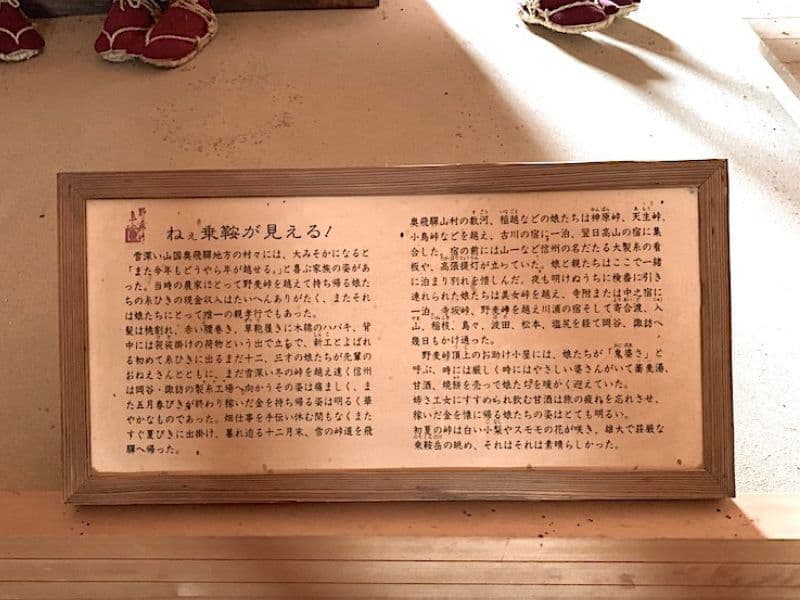 ねぇ乗鞍が見える!
雪深い山国奥飛驒地方の村々には、大みそかになると
「また今年もどうやら年が越せる。」と喜ぶ家族の姿があ
った。当時の農家にとって野麦峠を越えて持ち帰る娘た
ちの糸ひきの現金収入はたいへんありがたく、またそれ
は娘たちにとって唯一の親孝行でもあった。
髪は桃割れ、赤い腰巻き、草鞋履きに木綿のハバキ、背
中には袈裟掛けの荷物という出で立で、新工とよばれ
る初めて糸ひきに出るまだ十二、三才の娘たちが先輩の
おねえさんとともに、まだ雪深い冬の峠を越え遠く信州
は岡谷・諏訪の製糸工場へ向かうその姿は痛ましく、ま
た五月春びきが終わり稼いだ金を持ち帰る姿は明るく華
やかなものであった。畑仕事を手伝い休む間もなくまた
すぐ夏びきに出掛け、暮れ迫る十二月末、雪の峠道を飛
驒へ帰った。
奥飛驒山村の数河、稲越などの娘たちは神原峠、天生峠、
小鳥峠などを越え、古川の宿に一泊、翌日高山の宿に集
合した。宿の前には山一など信州の名だたる大製糸の看
板や、高張提灯が立っていた。娘と親たちはここで一緒
に泊まり別れを惜しんだ。夜も明けぬうちに検番に引き
連れられた娘たちは美女峠を越え、寺附または中之宿に
一泊。寺坂峠、野麦峠を越え川浦の宿そして寄合渡、入
山、稲核、島々、波田、松本、塩尻を経て岡谷、諏訪へ
幾日もかけ通った。
野麦峠頂上のお助け小屋には、娘たちが「鬼婆さ」と
呼ぶ、時には厳しく時にはやさしい婆さんがいて蕎麦湯、
甘酒、焼餅を売って娘たちを暖かく迎えていた。
姉さ工女にすすめられ飲む甘酒は旅の疲れを忘れさせ、
稼いだ金を懐に帰る娘たちの姿はとても明るい。
初夏の峠は白い小梨やスモモの花が咲き、雄大で荘厳な
乗鞍岳の眺め、それはそれは素晴らしかった。